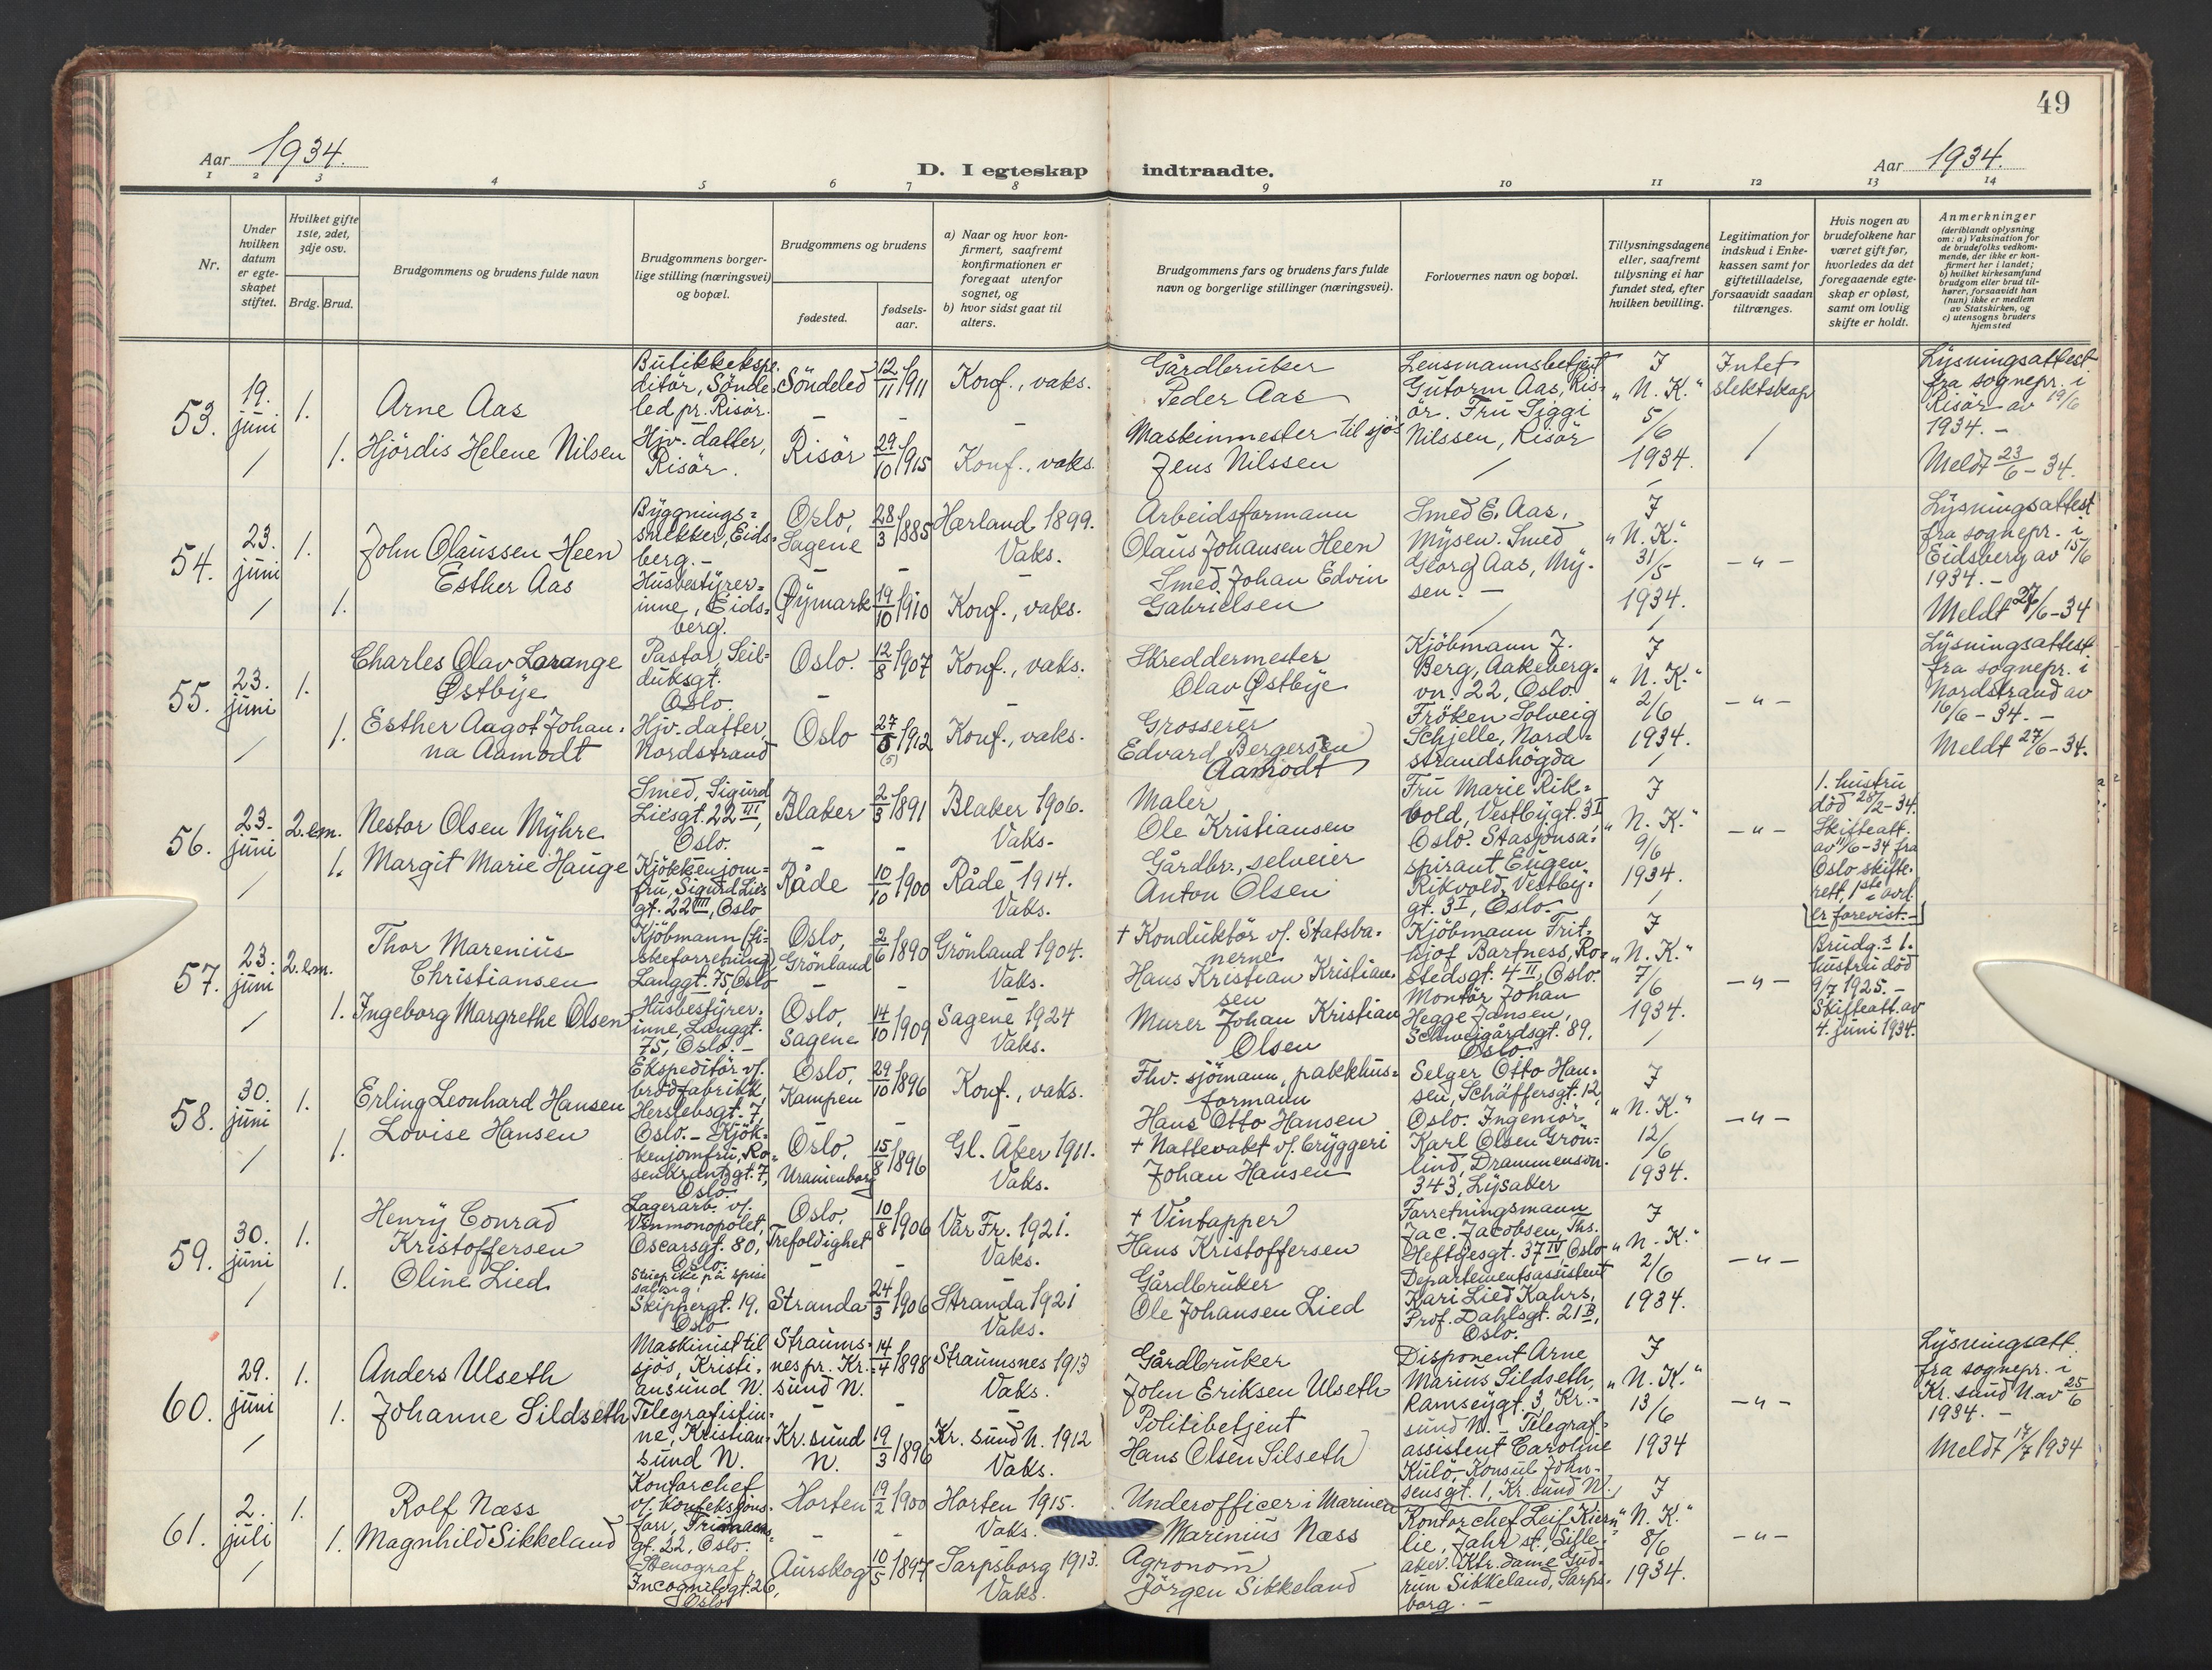 49
Aar 1934.
D. I egteskap indtraadte.
Aar 1934.
1 2 3 4 5 6 7 8 9 10 11 12 13 14
Nr.
Under
hvilken
datum
er egte-
skapet
stiftet.
Hvilket gifte
1ste, 2det,
3dje osv.
Brdg. Brud.
Brudgommens og brudens fulde navn
Brudgommens borger-
lige stilling (næringsvei)
og bopæl.
Brudgommens og brudens
fødested.
fødsels-
aar.
a) Naar og hvor kon-
firmert, saafremt
konfirmationen er
foregaat utenfor
sognet, og
b) hvor sidst gaat til
alters.
Brudgommens fars og brudens fars fulde
navn og borgerlige stillinger (næringsvei).
Forlovernes navn og bopæl.
Tillysningsdagene
eller, saafremt
tillysning ei har
fundet sted, efter
hvilken bevilling.
Legitimation for
indskud i Enke-
kassen samt for
giftetilladelse,
forsaavidt saadan
tiltrænges.
Hvis nogen av
brudefolkene har
været gift før,
hvorledes da det
foregaaende egte-
skap er opløst,
samt om lovlig
skifte er holdt.
Anmerkninger
(deriblandt oplysning
om: a) Vaksination for
de brudefolks vedkom-
mende, der ikke er kon-
firmert her i landet;
b) hvilket kirkesamfund
brudgom eller brud til-
hører, forsaavidt han
(hun) ikke er medlem
av Statskirken, og
c) utensogns bruders
hjemsted
53.
19.
juni
1.
1.
Arne Aas
Hjördis Helene Nilsen
Butikkekspe-
ditör, Sönde-
led pr. Risör.
Hjv. datter,
Risör.
Söndeled
Risör
12/11 1911
29/10 1915
Konf., vaks.
Konf., vaks.
Gårdbruker
Peder Aas
Maskinmester til sjös
Jens Nilssen
Lensmannsbetjent
Gutorm Aas, Ris-
ör. Fru Siggi
Nilssen, Risör
I
"N. K."
5/6
1934.
Intet
slektskap
Lysningsattest
fra sognepr. i
Risör av 19/6
1934. -
Meldt 23/6 - 34.
54.
23.
juni
1.
1.
John Olaussen Heen
Esther Aas
Bygnings-
snekker, Eids-
berg. -
Husbestyrer-
inne, Eids-
berg.
Oslo,
Sagene
Øymark
28/3 1885
19/10 1910
Hærland 1899.
Vaks.
Konf., vaks.
Arbeidsformann
Olaus Johansen Heen
Smed Johan Edvin
Gabrielsen
Smed E. Aas,
Mysen. Smed
Georg Aas, My-
sen. -
I
"N. K."
31/5
1934.
- " -
Lysningsattest
fra sognepr. i
Eidsberg av 15/6
1934. -
Meldt 27/6 - 34
55.
23.
juni
1.
1.
Charles Olav Lorange
Østbye
Esther Aagot Johan-
na Aamodt
Pastor, Seil-
duksgt.
Oslo.
Hjv. datter,
Nordstrand
Oslo.
Oslo
12/8 1907
27/5 1912
(5)
Konf., vaks.
Konf., vaks.
Skreddermester
Olav Østbye
Grosserer
Edvard Bergersen
Aamodt
Kjöbmann J.
Berg, Aakeberg-
vn. 22, Oslo.
Fröken Solveig
Schjelle, Nord-
strandshögda
I
"N. K."
2/6
1934.
- " -
Lysningsattest
fra sognepr. i
Nordstrand av
16/6 - 34. -
Meldt 27/6 - 34.
56.
23.
juni
2. em.
1.
Nestor Olsen Myhre
Margit Marie Hauge
Smed, Sigurd
Liesgt. 22 III,
Oslo.
Kjökkenjom-
fru, Sigurd Lies
gt. 22 III, Oslo
Blaker
Råde
2/3 1891
10/10 1900
Blaker 1906.
Vaks.
Råde, 1914.
Vaks.
Maler
Ole Kristiansen
Gårdbr., selveier
Anton Olsen
Fru Marie Rik-
vold, Vestbygt. 3 I
Oslo. Stasjonsa-
spirant Eugen
Rikvold, Vestby-
gt. 3 I, Oslo.
I
"N. K."
9/6
1934.
- " -
1. hustru
död 28/2 - 34.
Skifteatt.
av 11/6 - 34 fra
Oslo skifte-
rett, 1ste avd.
er forevist. -
57.
23.
juni
2. em.
1.
Thor Marenius
Christiansen
Ingeborg Margrethe Olsen
Kjöbmann (fi-
skeforretning)
Langgt. 75, Oslo
Husbestyrer-
inne, Langgt.
75, Oslo. -
Oslo,
Grönland
Oslo,
Sagene
2/6 1890
14/10 1909
Grönland 1904.
Vaks.
Sagene 1924
Vaks.
+ Konduktör v/. Statsba-
nerne
Hans Kristian Kristian-
sen
Murer Johan Kristian
Olsen
Kjöbmann Frit-
hjof Bartness, Ro-
stedsgt. 4 II, Oslo.
Montör Johan
Hegge Jansen,
Schweigårdsgt. 89,
Oslo.
I
"N. K."
7/6
1934.
- " -
Brudg.s 1.
hustru död
9/7 1925. -
Skifteatt. av
4. juni 1934.
58.
30.
juni
1.
1.
Erling Leonhard Hansen
Lovise Hansen
Ekspeditör v/.
brödfabrikk,
Herslebsgt. 7
Oslo. - Kjök-
kenjomfru, Ro-
senkrantzgt. 7,
Oslo.
Oslo,
Kampen
Oslo,
Uranienborg
29/10 1896
15/8 1896
Konf., vaks.
Gl. Aker 1911.
Vaks.
Fhv. sjömann, pakkhus-
formann
Hans Otto Hansen
+ Nattevakt v/. bryggeri
Johan Hansen
Selger Otto Han-
sen, Schäffersgt. 12,
Oslo. Ingeniör
Karl Olsen Grön-
lind, Drammensvn.
343, Lysaker
I
"N. K."
12/6
1934.
- " -
59.
30.
juni
1.
1.
Henry Conrad
Kristoffersen
Oline Lied
Lagerarb. v/.
Vinmonopolet,
Oscarsgt. 80,
Oslo.
Stuepike på spise
salsvg.
Skippergt. 19,
Oslo
Oslo,
Trefoldighet
Stranda
10/8 1906
24/3 1906
Vår Fr. 1921.
Vaks.
Stranda 1921
Vaks.
+ Vintapper
Hans Kristoffersen
Gårdbruker
Ole Johansen Lied
Forretningsmann
Jac. Jacobsen, Ths.
Heftyesgt. 37 IV Oslo
Departementsassistent
Kari Lied Kahrs,
Prof. Dahlsgt. 21 B,
Oslo.
I
"N. K."
2/6
1934.
- " -
60.
29.
juni
1.
1.
Anders Ulseth
Johanne Sildseth
Maskinist til
sjös, Kristi-
ansund N.
Telegrafistin-
ne, Kristian-
sund N.
Straums-
nes pr. Kr.-
sund N.
Kr. sund
N.
14/4 1898
19/3 1896
Straumsnes 1913
Vaks.
Kr. sund N. 1912
Vaks.
Gårdbruker
John Eriksen Ulseth
Politibetjent
Hans Olsen Silseth
Disponent Arne
Marius Sildseth,
Ramsøygt. 3, Kr.-
sund N. - Telegraf-
assistent Caroline
Kulö, Konsul John-
sensgt. 1, Kr. sund N.
I
"N. K."
13/6
1934
- " -
Lysningsatt.
fra sognepr. i
Kr. sund N. av 25/6
1934. -
Meldt 17/7 1934
61.
2.
juli
1.
1.
Rolf Næss
Magnhild Sikkeland
Kontorchef
v/. konfeksjons-
forr,
gt. 22, Oslo.
Stenograf
Incognitogt. 26,
Oslo
Horten
Aurskog
19/2 1900
10/5 1897
Horten 1915.
Vaks.
Sarpsborg 1913.
Vaks.
Underofficer i Marinen
Marinius Næss
Agronom
Jörgen Sikkeland
Kontorchef Leif Kiern-
lie, Jahr st., Sille-
aker. Ktr. dame Gud-
run Sikkeland, Sarps-
borg. -
I
"N. K."
8/6
1934.
- " -